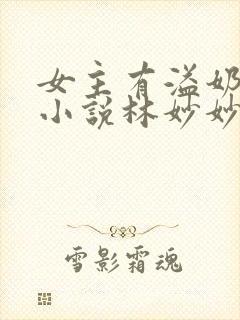 女主有溢奶
小说林妙妙
雪影霜魂